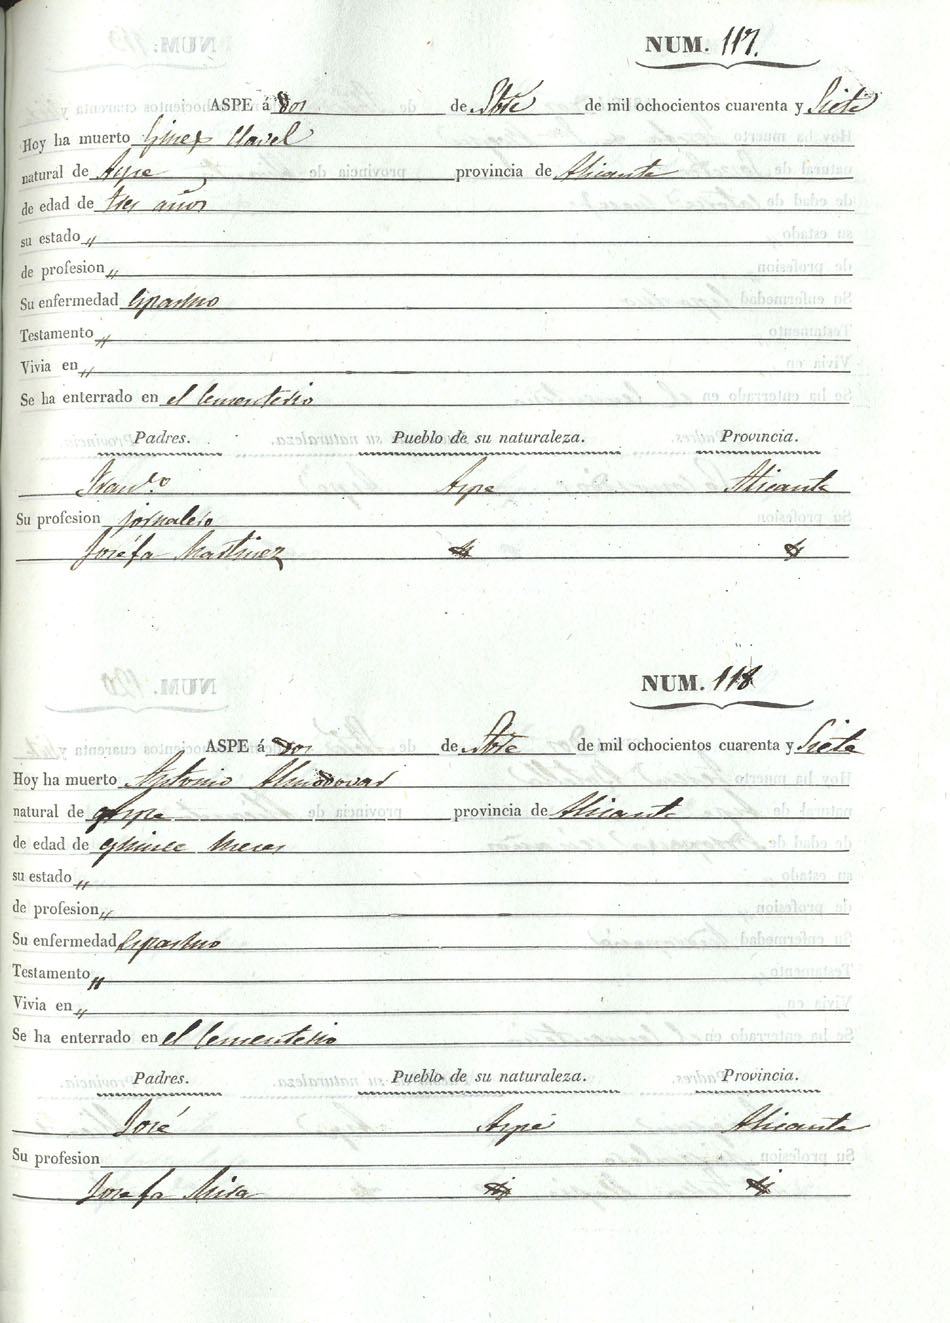 NUM. 117.
ASPE á dos de Sbre de mil ochocientos cuarenta y Siete
Hoy ha muerto Gines Clavel
natural de Aspe provincia de Alicante
de edad de tres años
su estado „
de profesion „
Su enfermedad Espasmo
Testamento „
Vivia en „
Se ha enterrado en el Cementerio
Padres. Pueblo de su naturaleza. Provincia.
Franco. Aspe Alicante
Su profesion jornalero
Josefa Martinez
NUM. 118
ASPE á dos de Sbre de mil ochocientos cuarenta y Siete
Hoy ha muerto Antonio Almodovar
natural de Aspe provincia de Alicante
de edad de quince meses
su estado „
de profesion „
Su enfermedad Espasmo
Testamento „
Vivia en „
Se ha enterrado en el Cementerio
Padres. Pueblo de su naturaleza. Provincia.
José Aspe Alicante
Su profesion
Josefa Mira